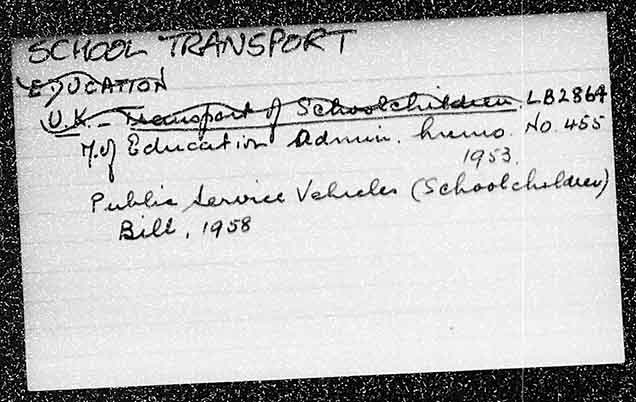 SCHOOL TRANSPORT
EDUCATION
U.K. - Transport of Schoolchildren LB2864
M. of Education Admin. memo. No. 455
1953.
Public Service Vehicles (Schoolchildren)
Bill, 1958